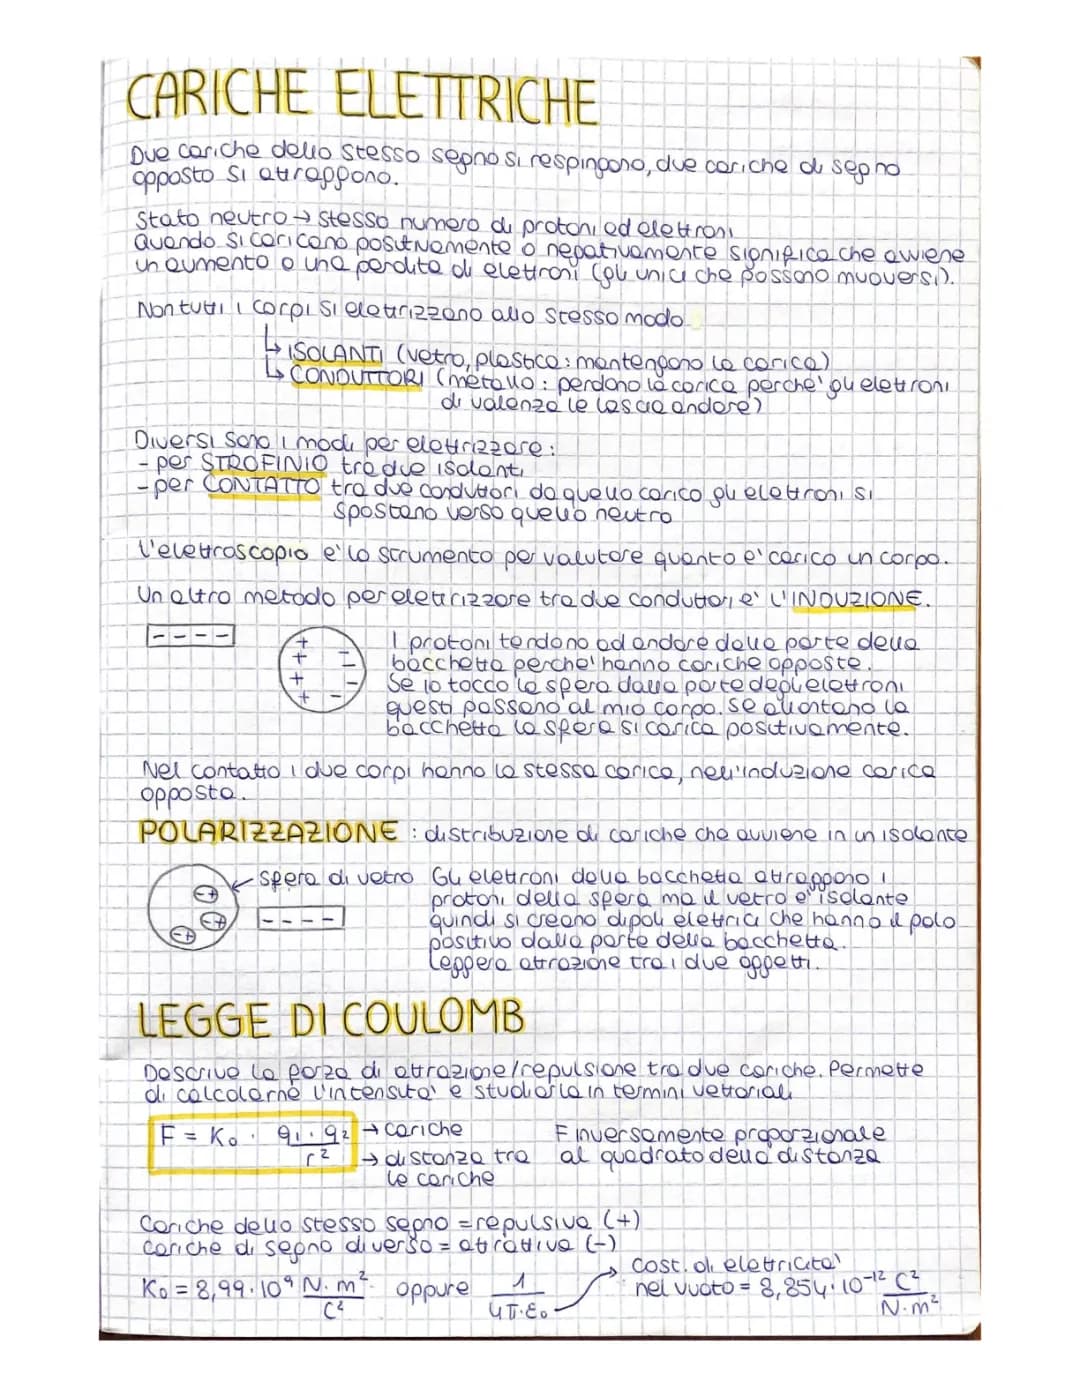 CARICHE ELETTRICHE
Due cariche dello stesso segno si respingono, due cariche di segno
opposto si attraggono.
Stato neutro → stesso numero di protoni ed elettroni
Quando si caricano positivamente o negativamente significa che avviene
un aumento o una perdita di elettroni (gli unici che possono muoversi).
Non tutti i corpi si elettrizzano allo stesso modo
↳ ISOLANTI (vetro, plastica: mantengono la carica)
↳ CONDUTTORI (metallo: perdono la carica perche' gli elettroni
di valenza le lascia andare)
Diversi sono i modi per elettrizzare:
- per STROFINIO tra due isolanti
- per CONTATTO tra due conduttori da quello carico gli elettroni si
spostano verso quello neutro
L'elettroscopio e' lo strumento per valutare quanto e' carico un corpo.
Un altro metodo per elettrizzare tra due conduttori e' L'INDUZIONE.
- - - -
+ + + +
- - - -
I protoni tendono ad andare dalla parte della
bacchetta perche' hanno cariche opposte.
Se io tocco la sfera dalla parte degli elettroni
questi passano al mio corpo. Se allontano la
bacchetta la sfera si carica positivamente.
Nel contatto i due corpi hanno la stessa carica, nell'induzione carica
opposta.
POLARIZZAZIONE : distribuzione di cariche che avviene in un isolante
sfera di vetro
- +
- +
- +
- - - -
Gli elettroni della bacchetta attraggono i
protoni della sfera ma il vetro e' isolante
quindi si creano dipoli elettrici che hanno il polo
positivo dalla parte della bacchetta.
Leggera attrazione tra i due oggetti.
LEGGE DI COULOMB
Descrive la forza di attrazione/repulsione tra due cariche. Permette
di calcolarne l'intensita' e studiarla in termini vettoriali
F = K₀ · q₁·q₂ / r²
→ cariche
→ distanza tra
le cariche
F inversamente proporzionale
al quadrato della distanza
Cariche dello stesso segno = repulsiva (+)
cariche di segno diverso = attrattiva (-)
K₀ = 8,99·10⁹ N·m²/C² oppure 1/4π·ε₀
cost. di elettricita'
nel vuoto = 8,854·10⁻¹² C²/N·m²